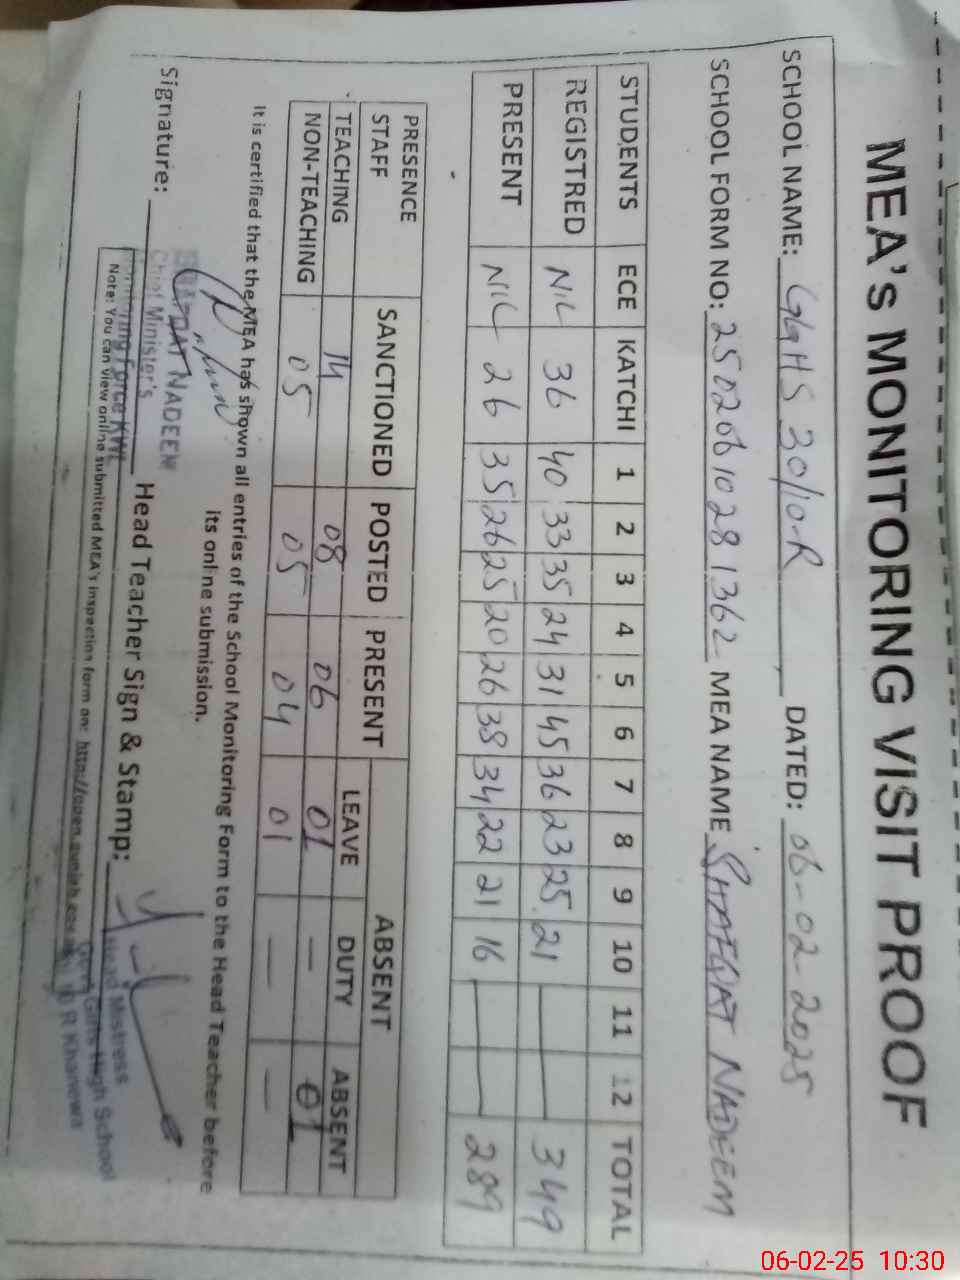 MEA's MONITORING VISIT PROOF
SCHOOL NAME: GGHS 30/10-R DATED: 06-02-2025
SCHOOL FORM NO: 25020610281362 MEA NAME SHAFQAT NADEEM
STUDENTS ECE KATCHI 1 2 3 4 5 6 7 8 9 10 11 12 TOTAL
REGISTRED NIL 36 40 33 35 24 31 45 36 23 25 21 — — 349
PRESENT NIL 26 35 26 25 20 26 38 34 22 21 16 — — 289
PRESENCE STAFF SANCTIONED POSTED PRESENT ABSENT
LEAVE DUTY ABSENT
TEACHING 14 08 06 01 — 01
NON-TEACHING 05 05 04 01 — —
It is certified that the MEA has shown all entries of the School Monitoring Form to the Head Teacher before
its online submission.
Signature: Head Teacher Sign & Stamp:
SHAFQAT NADEEM
Chief Minister's
Monitoring Force KWL
Head Mistress
Govt Girls High School
R Khanewal
Note: You can view online submitted MEA's inspection form on: http://open.punjab.gov.pk
06-02-25 10:30